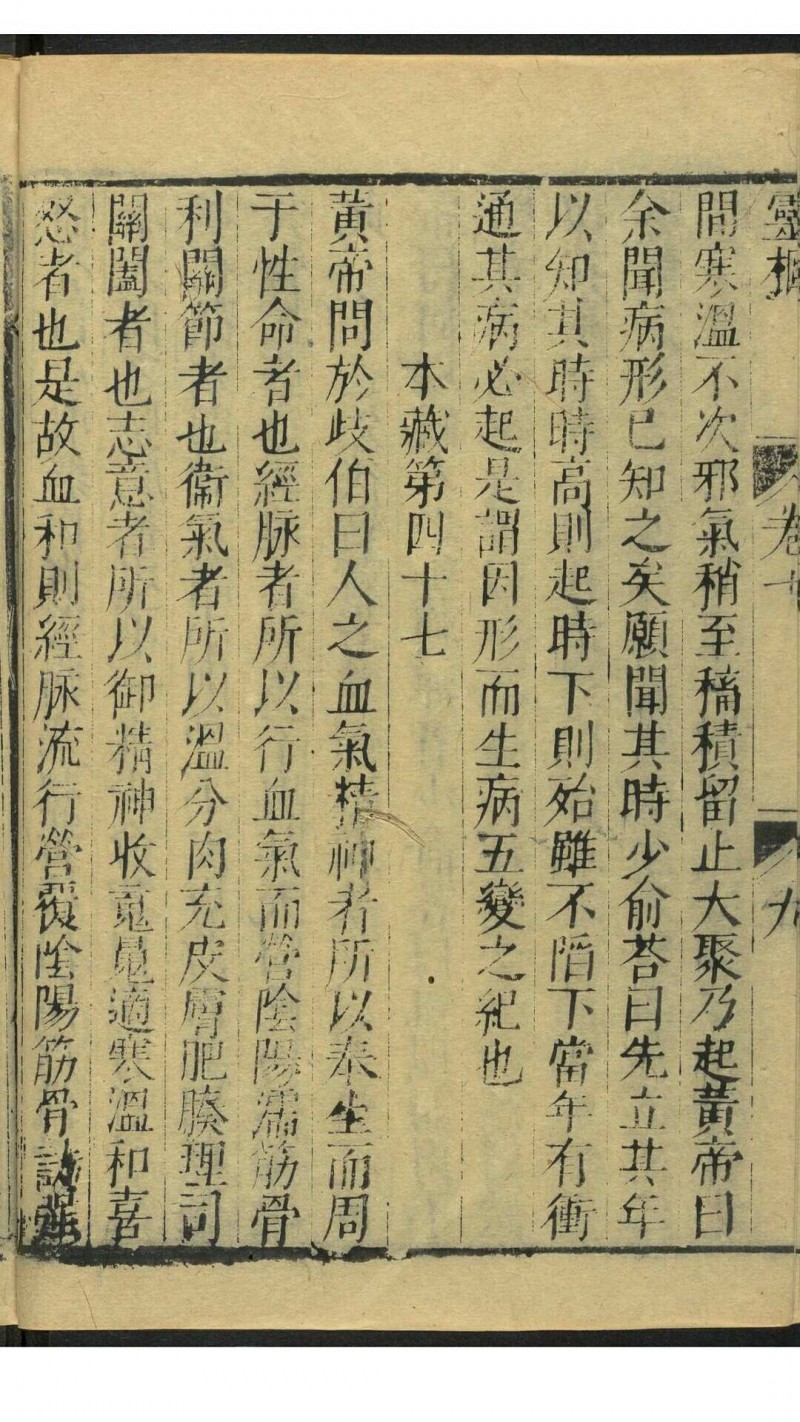 靈樞 卷十 九
間寒溫不次邪氣稍至稸積留止大聚乃起黃帝曰
余聞病形已知之矣願聞其時少俞荅曰先立其年
以知其時時高則起時下則殆雖不陷下當年有衝
通其病必起是謂因形而生病五變之紀也
本藏第四十七
黃帝問於歧伯曰人之血氣精神者所以奉生而周
于性命者也經脉者所以行血氣而營陰陽濡筋骨
利關節者也衞氣者所以溫分肉充皮膚肥腠理司
關闔者也志意者所以御精神收䰟魄適寒溫和喜
怒者也是故血和則經脉流行營覆陰陽筋骨